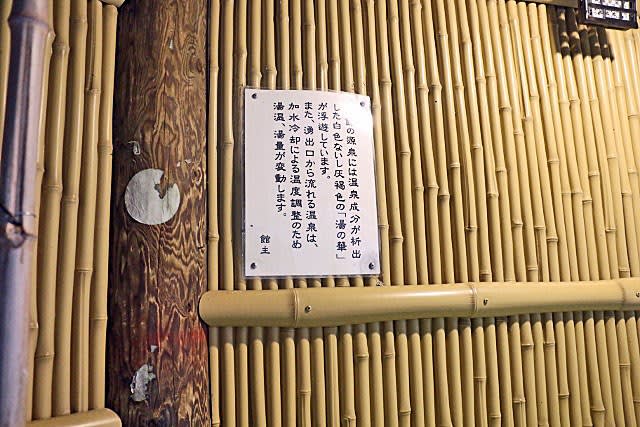 の源泉には温泉成分が析出
した白色ないし灰褐色の「湯の華」
が浮遊しています。
また、湧出口から流れる温泉は、
加水冷却による温度調整のため
湯温、湯量が変動します。
館主